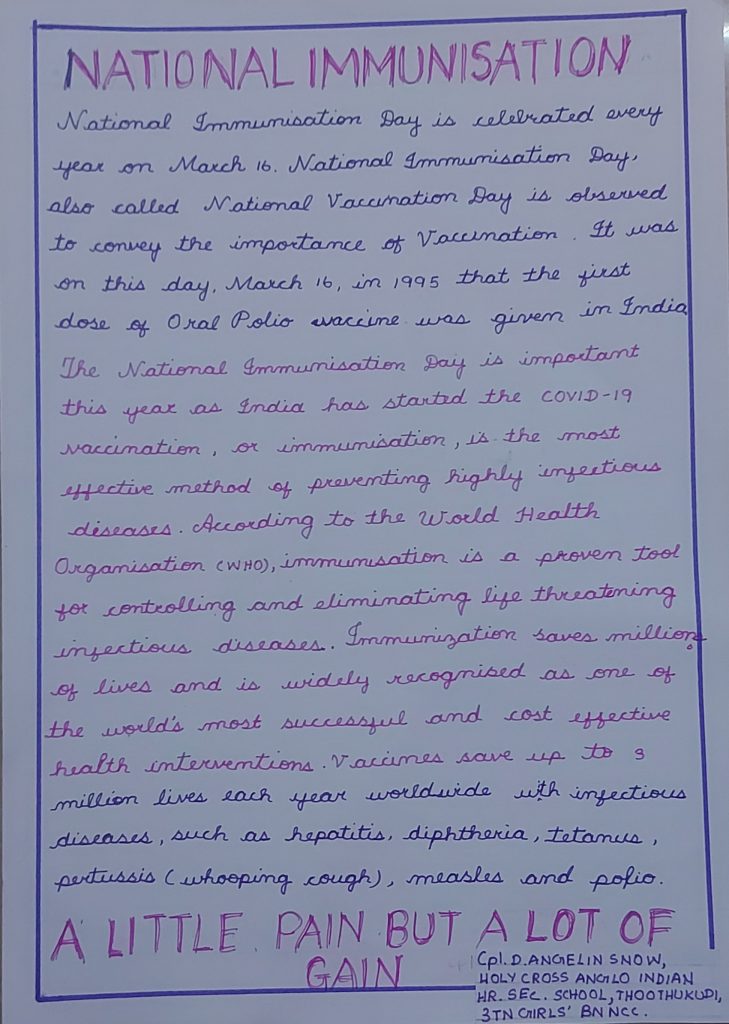 NATIONAL IMMUNISATION
National Immunisation Day is celebrated every
year on March 16. National Immunisation Day,
also called National Vaccination Day is observed
to convey the importance of Vaccination. It was
on this day, March 16, in 1995 that the first
dose of Oral Polio vaccine was given in India
The National Immunisation Day is important
this year as India has started the COVID-19
vaccination, or immunisation, is the most
effective method of preventing highly infectious
diseases. According to the World Health
Organisation (WHO), immunisation is a proven tool
for controlling and eliminating life threatening
infectious diseases. Immunization saves millions
of lives and is widely recognised as one of
the world's most successful and cost effective
health interventions. Vaccines save up to 3
million lives each year worldwide with infectious
diseases, such as hepatitis, diphtheria, tetanus,
pertussis (whooping cough), measles and polio.
A LITTLE PAIN BUT A LOT OF
GAIN
Cpl. D. ANGELIN SNOW,
HOLY CROSS ANGLO INDIAN
HR. SEC. SCHOOL, THOOTHUKUDI,
3TN GIRLS' BN NCC.